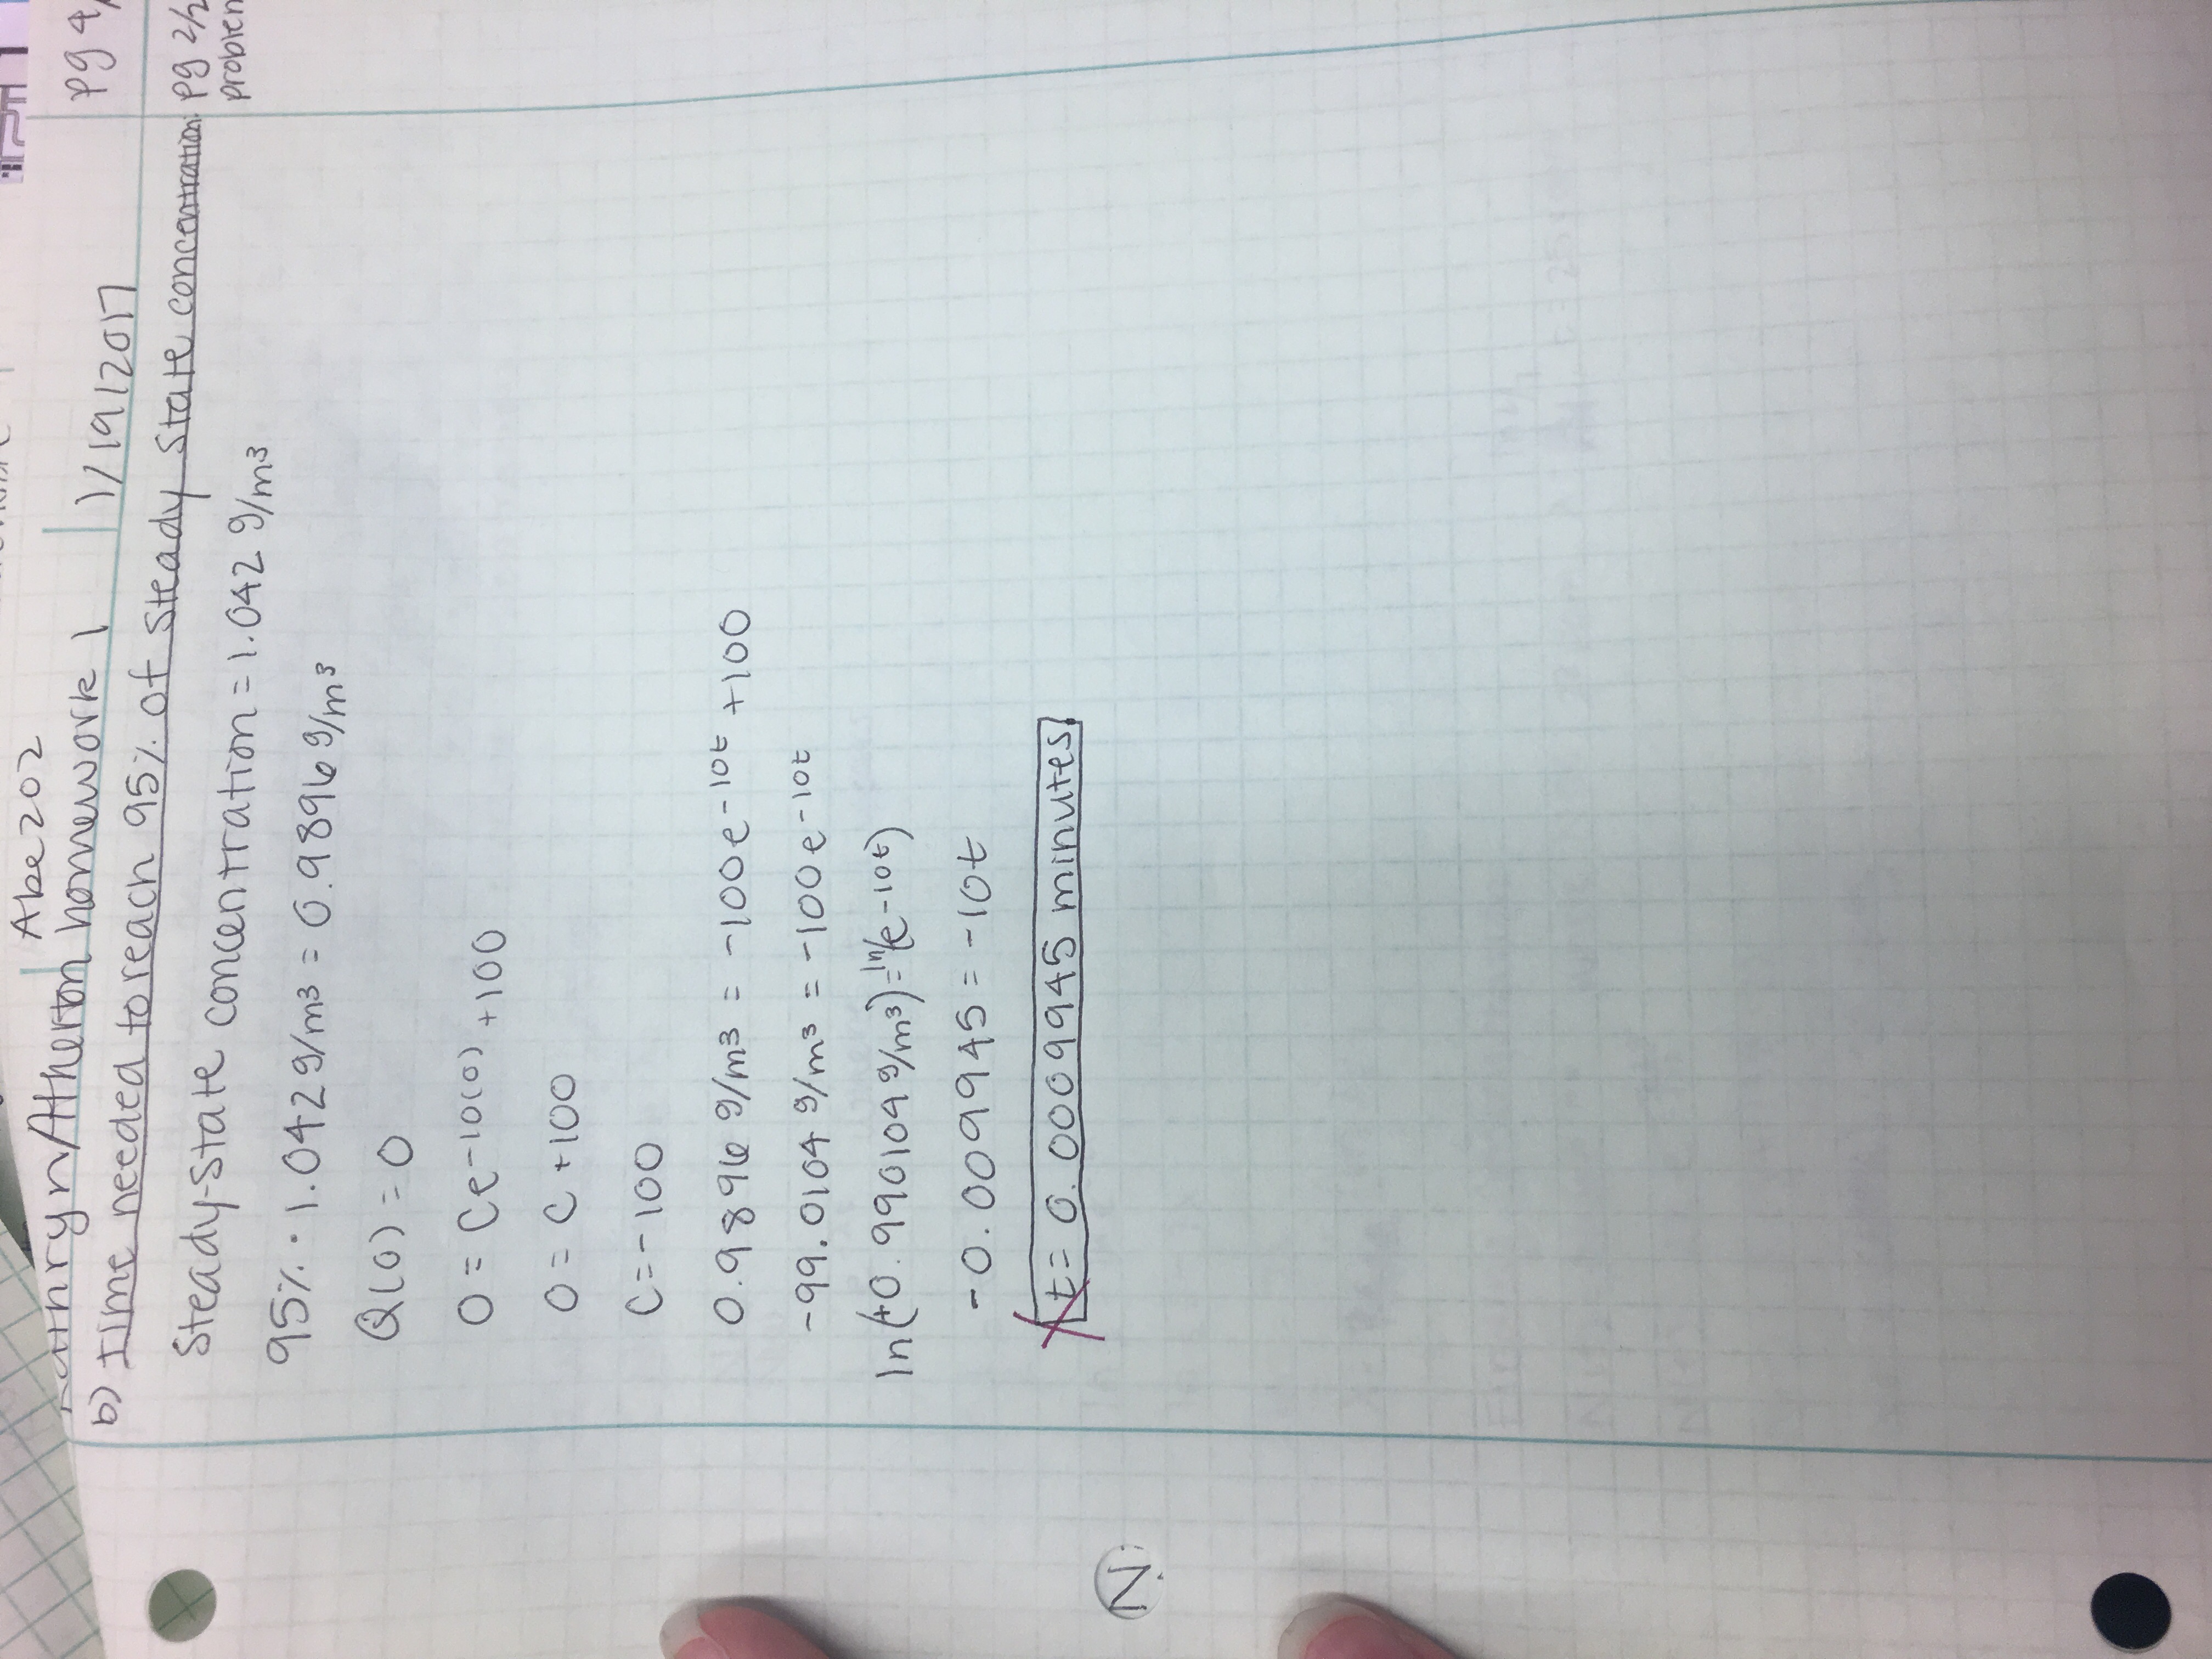 Abe202
Kathryn Atherton homework 1 1/19/2017 pg 4/
b) time needed to reach 95% of steady state concentration: pg 2/2
problem
Steady-state concentration = 1.042 g/m³
95% · 1.042 g/m³ = 0.9896 g/m³
Q(0) = 0
0 = Ce^-10(0) +100
0 = C +100
C = -100
0.9896 g/m³ = -100e^-10t +100
-99.0104 g/m³ = -100e^-10t
ln(+0.990104 g/m³) = ln(e^-10t)
-0.009945 = -10t
t = 0.0009945 minutes
N